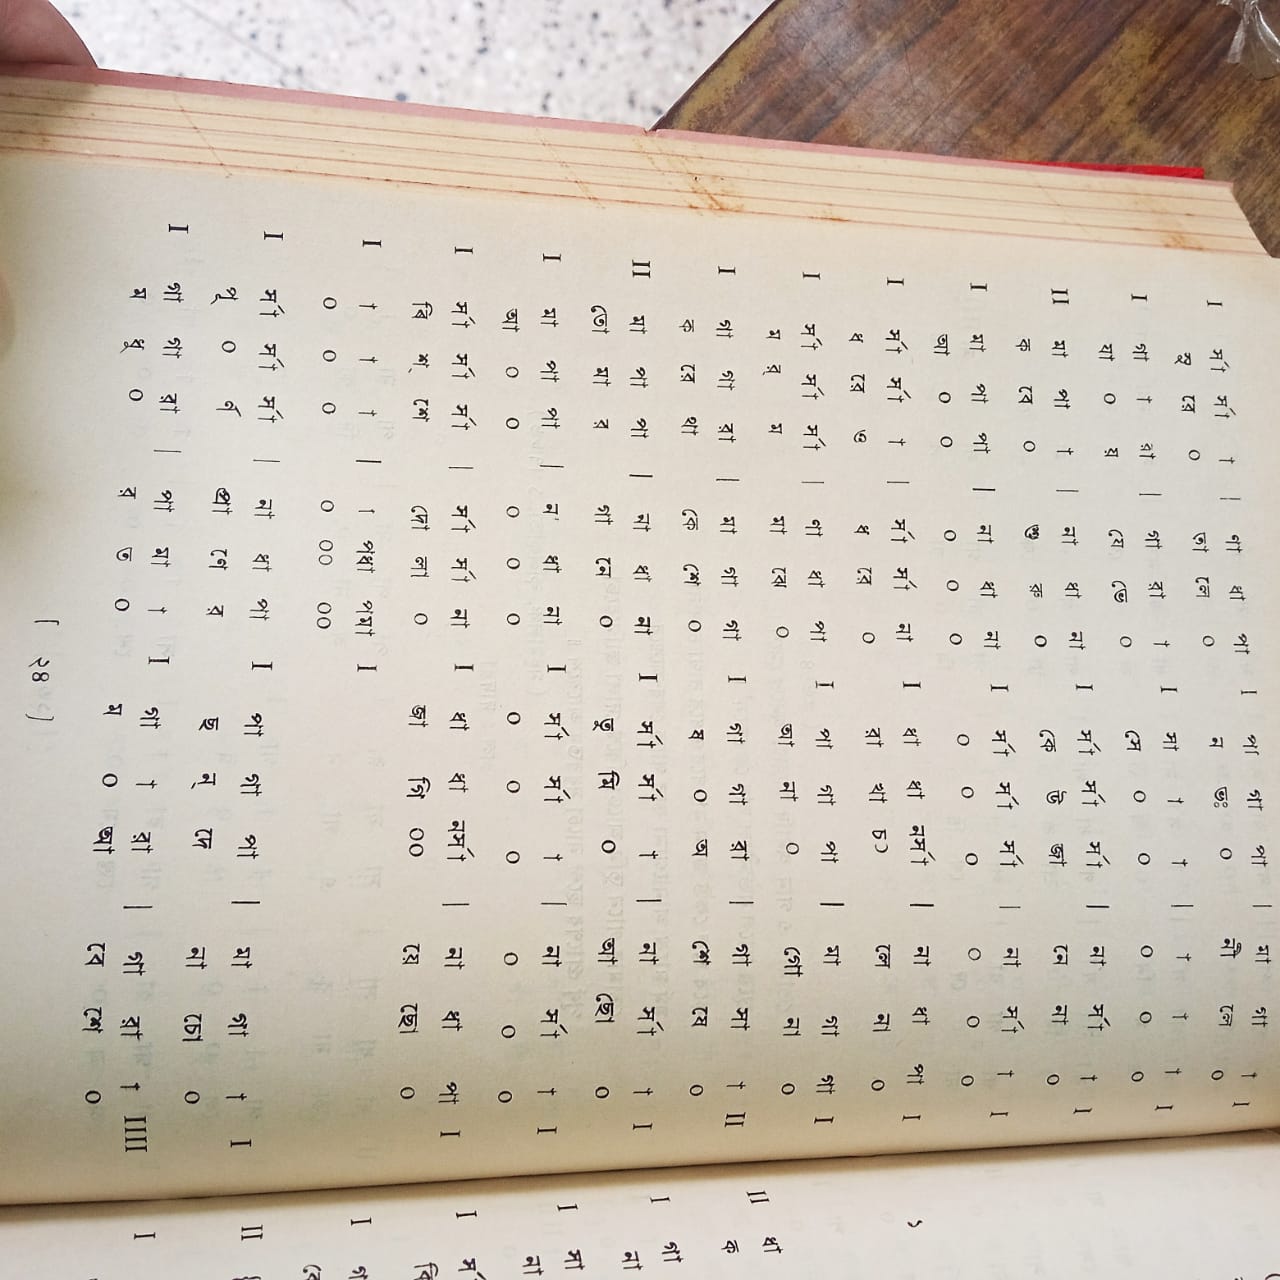 I র্সা র্সা † | পা ধা পা I পা পা পা | মা গা † I
সু রে ০ তা লে ০ ন ভঃ ০ নী লে ০
I গা † রা | গা রা † I সা † † | † † † I
মা ০ য় মে ভে ০ সে ০ ০ ০ ০ ০
II মা পা † | না ধা না I র্সা র্সা র্সা | না র্সা † I
ক রে ০ শু রু ০ কে উ জা নে না ০
I মা পা পা | না ধা না I র্সা র্সা র্সা | না র্সা † I
আ ০ ০ ০ ০ ০ ০ ০ ০ ০ ০ ০
I র্সা র্সা † | র্সা র্সা না I ধা ধা নর্সা | না ধা পা I
ধ রে ও ধ রে ০ রা খা লে না ০
I র্সা র্সা র্সা | পা ধা পা I পা পা পা | মা গা গা I
ম র্ ম মা ঝে ০ আ না ০ গো না ০
I গা গা রা | মা গা পা I গা গা রা | গা সা † II
ক রে থা কে শে ০ ষ ০ অ শে ষে ০
II মা পা পা | না ধা না I র্সা র্সা † | না র্সা † I
তো মা র গা নে ০ তু মি ০ আ ছো ০
I মা পা পা | ন ধা না I র্সা র্সা † | না র্সা † I
আ ০ ০ ০ ০ ০ ০ ০ ০ ০ ০ ০
I র্সা র্সা র্সা | র্সা র্সা না I ধা ধা নর্সা | না ধা পা I
বি শ্ শে দো লা ০ জা গি ০০ য়ে ছো ০
I † † † | † পধা পমা I
০ ০ ০ ০ ০০ ০০
I র্সা র্সা র্সা | না ধা পা I পা পা পা | মা গা † I
পূ ০ র্ণ প্রা ণে র ছ ন্ দে না চো ০
I গা গা রা | পা মা † I গা † রা | গা রা † IIII
ম ধু ০ র ত ০ ম ০ আ বে শে ০
[ ২৪
১
II ধা
ক
I গা
না
I সা
না
I র্স
বি
I
II
I